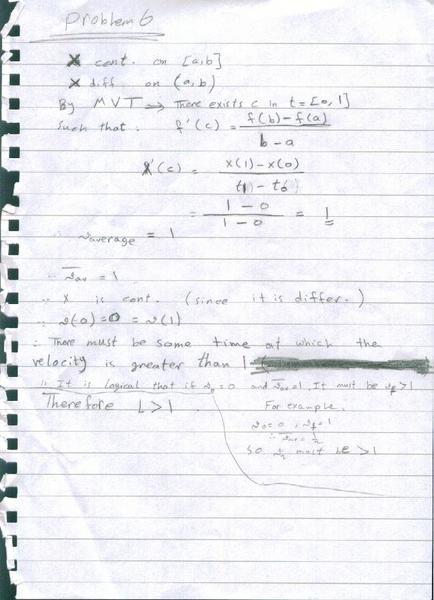 Problem 6
X cont. on [a,b]
X diff on (a,b)
By MVT → There exists c in t = [0, 1]
Such that : f'(c) = f(b) - f(a)
b - a
X'(c) = x(1) - x(0)
t1 - t0
= 1 - 0 = 1
1 - 0
∴ v average = 1
∵ v av = 1
∵ X is cont. (since it is differ.)
∵ v(0) = 0 = v(1)
∴ There must be some time at which the
velocity is greater than 1
∴ It is logical that if v0 = 0 and v av = 1. It must be vf > 1
Therefore L > 1. For example,
v0 = 0, vf = 1
∴ v av = 1/2
So must be > 1